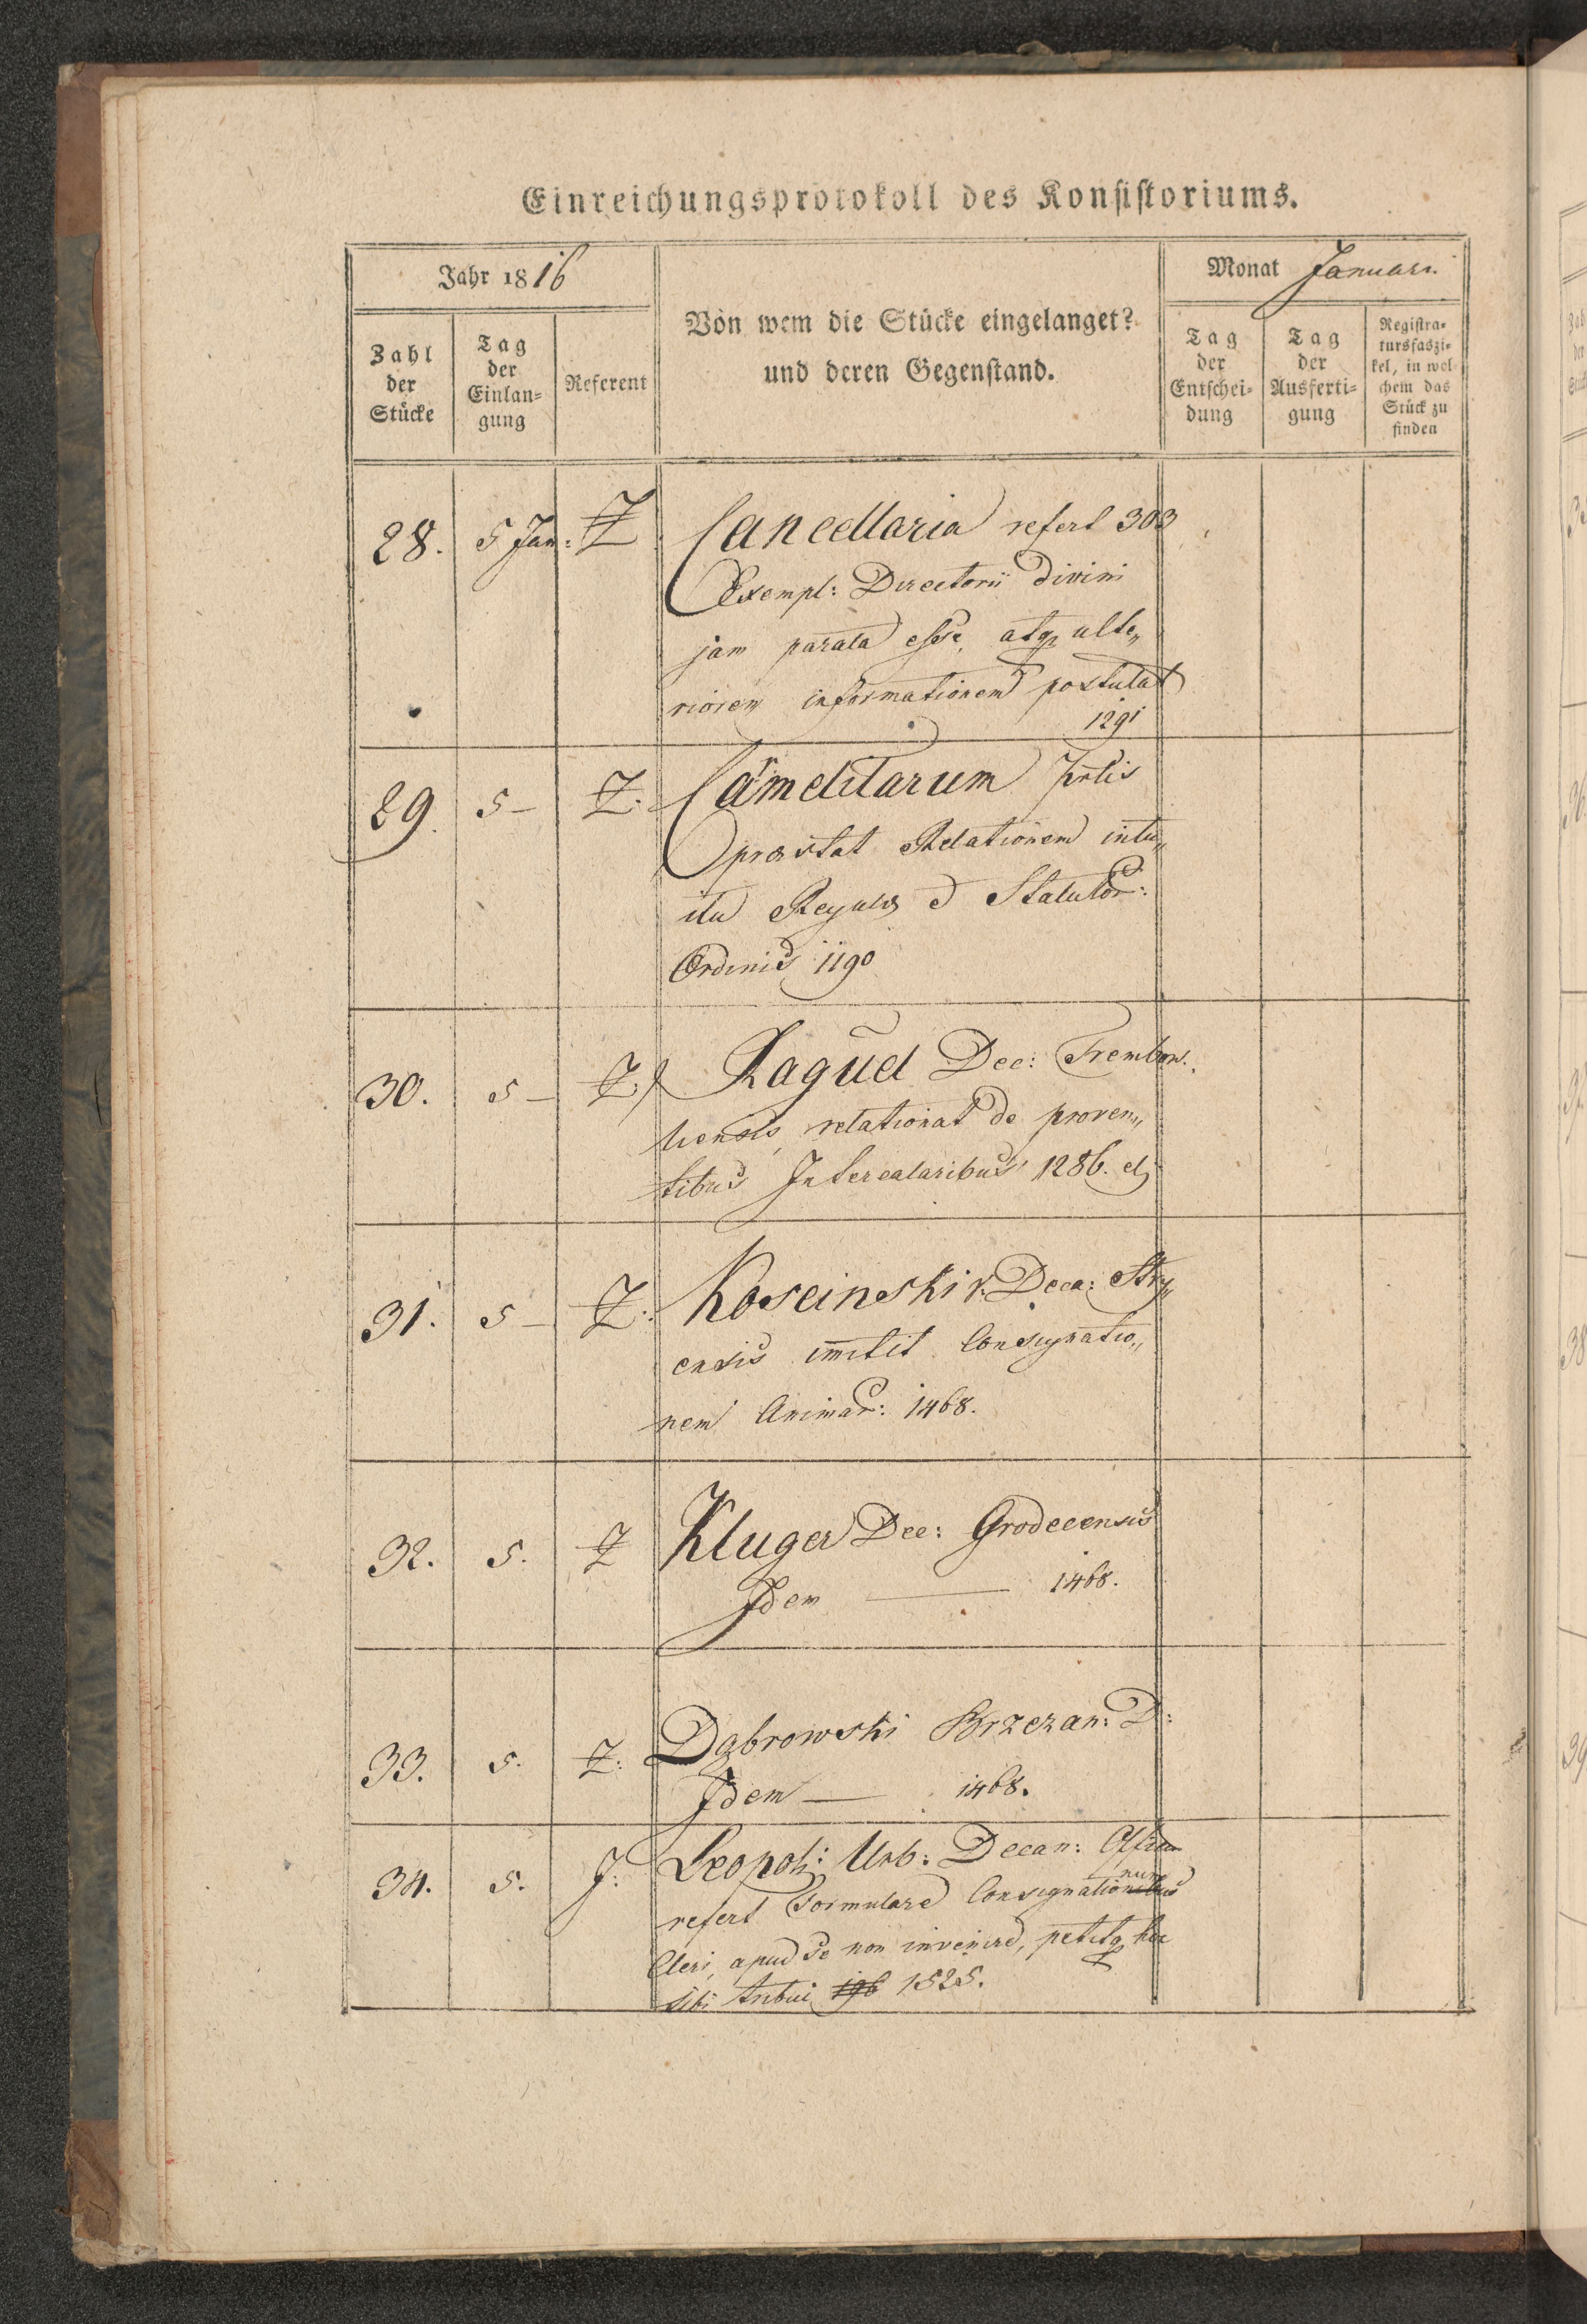 Einreichungsprotokoll des Konsistoriums.
Jahr 1816
Monat Januari.
Zahl der Stücke
Tag der Einlan=gung
Referent
Von wem die Stücke eingelanget?
und deren Gegenstand.
Tag der Entschei=dung
Tag der Ausferti=gung
Registra=tursfaszi=kel, in wel chem das Stück zu finden
28. 5 Jan: Z Cancellaria refert 303
Exempl: Directorii Divini
jam parata esse, atq ulte„
riorem informationem postulat
1291
29. 5 – Z: Carmelitarum
præstat Relationem intu„
itu Regulæ et Statutor:
Ordinis 1190
30. 5 – Z Ragud Dec: Trembow.
liensis, relationat de proven„
tibus Intercalaribus 1286.
31. 5 – Z: Koscinski V. Deca: Stry„
ensis im̄itit Consignatio„
nem Animar: 1468.
32. 5. Z Kluger Dec: Grodecensis
Idem — 1468.
33. 5. Z: Dąbrowski Brzezan: D:
Idem — 1468.
34. 5. J: Leopoli: Urb: Decan:
refert Formulare Consignationum
Cleri, apud se non invenire, petitq
sibi tribui 196 1525.